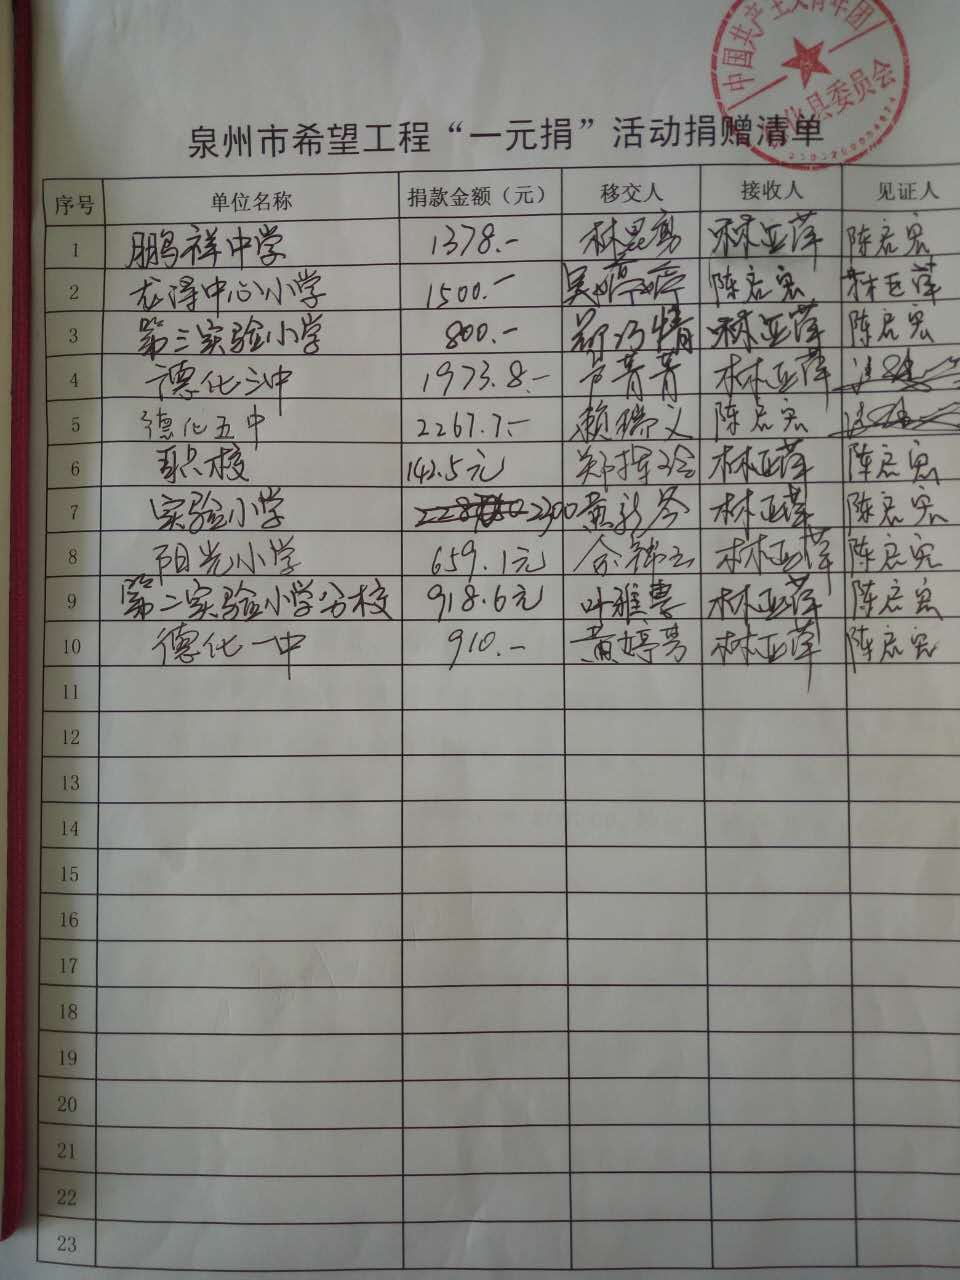 中国共产主义青年团
德化县委员会
泉州市希望工程“一元捐”活动捐赠清单
序号 单位名称 捐款金额（元） 移交人 接收人 见证人
1 鹏祥中学 1378.- 林昆勇 林亚萍 陈启宏
2 尤浔中心小学 1500.- 吴婷婷 陈启宏 林亚萍
3 第三实验小学 800.- 林亚萍 陈启宏
4 德化三中 1973.8.- 卢菁菁 林亚萍
5 德化五中 2267.7.- 赖瑞义 陈启宏
6 职校 142.5元 林亚萍 陈启宏
7 实验小学 2300 林亚萍 陈启宏
8 阳光小学 659.1元 林亚萍 陈启宏
9 第二实验小学分校 918.6元 叶雅惠 林亚萍 陈启宏
10 德化一中 910.- 黄婷芳 林亚萍 陈启宏
11
12
13
14
15
16
17
18
19
20
21
22
23